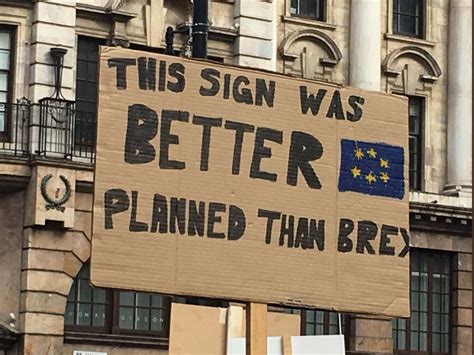 THIS SIGN WAS
BETTER
PLANNED THAN BREX